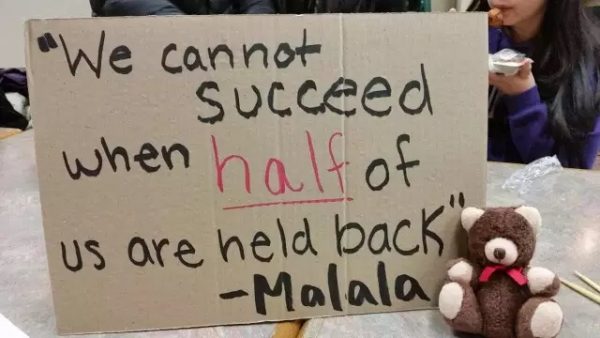 "We cannot
succeed
when half of
us are held back"
-Malala